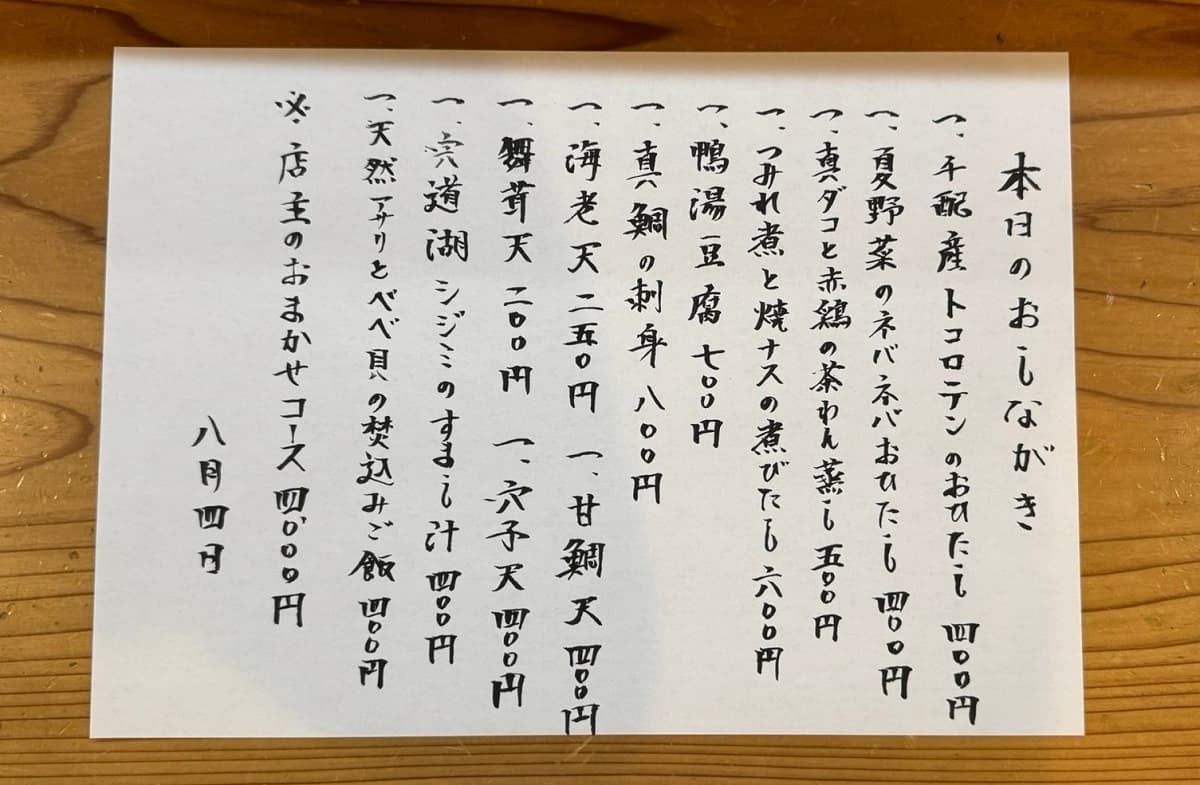 本日のおしながき
一、手配産トコロテンのおひたし 四〇〇円
一、夏野菜のネバネバおひたし 四〇〇円
一、真ダコと赤鶏の茶わん蒸し 五〇〇円
一、つみれ煮と焼ナスの煮びたし 六〇〇円
一、鴨湯豆腐 七〇〇円
一、真鯛の刺身 八〇〇円
一、海老天 二五〇円 一、甘鯛天 四〇〇円
一、舞茸天 二〇〇円 一、穴子天 四〇〇円
一、宍道湖シジミのすまし汁 四〇〇円
一、天然アサリとベベ貝の焚込みご飯 四〇〇円
※・店主のおまかせコース 四、〇〇〇円
八月四日